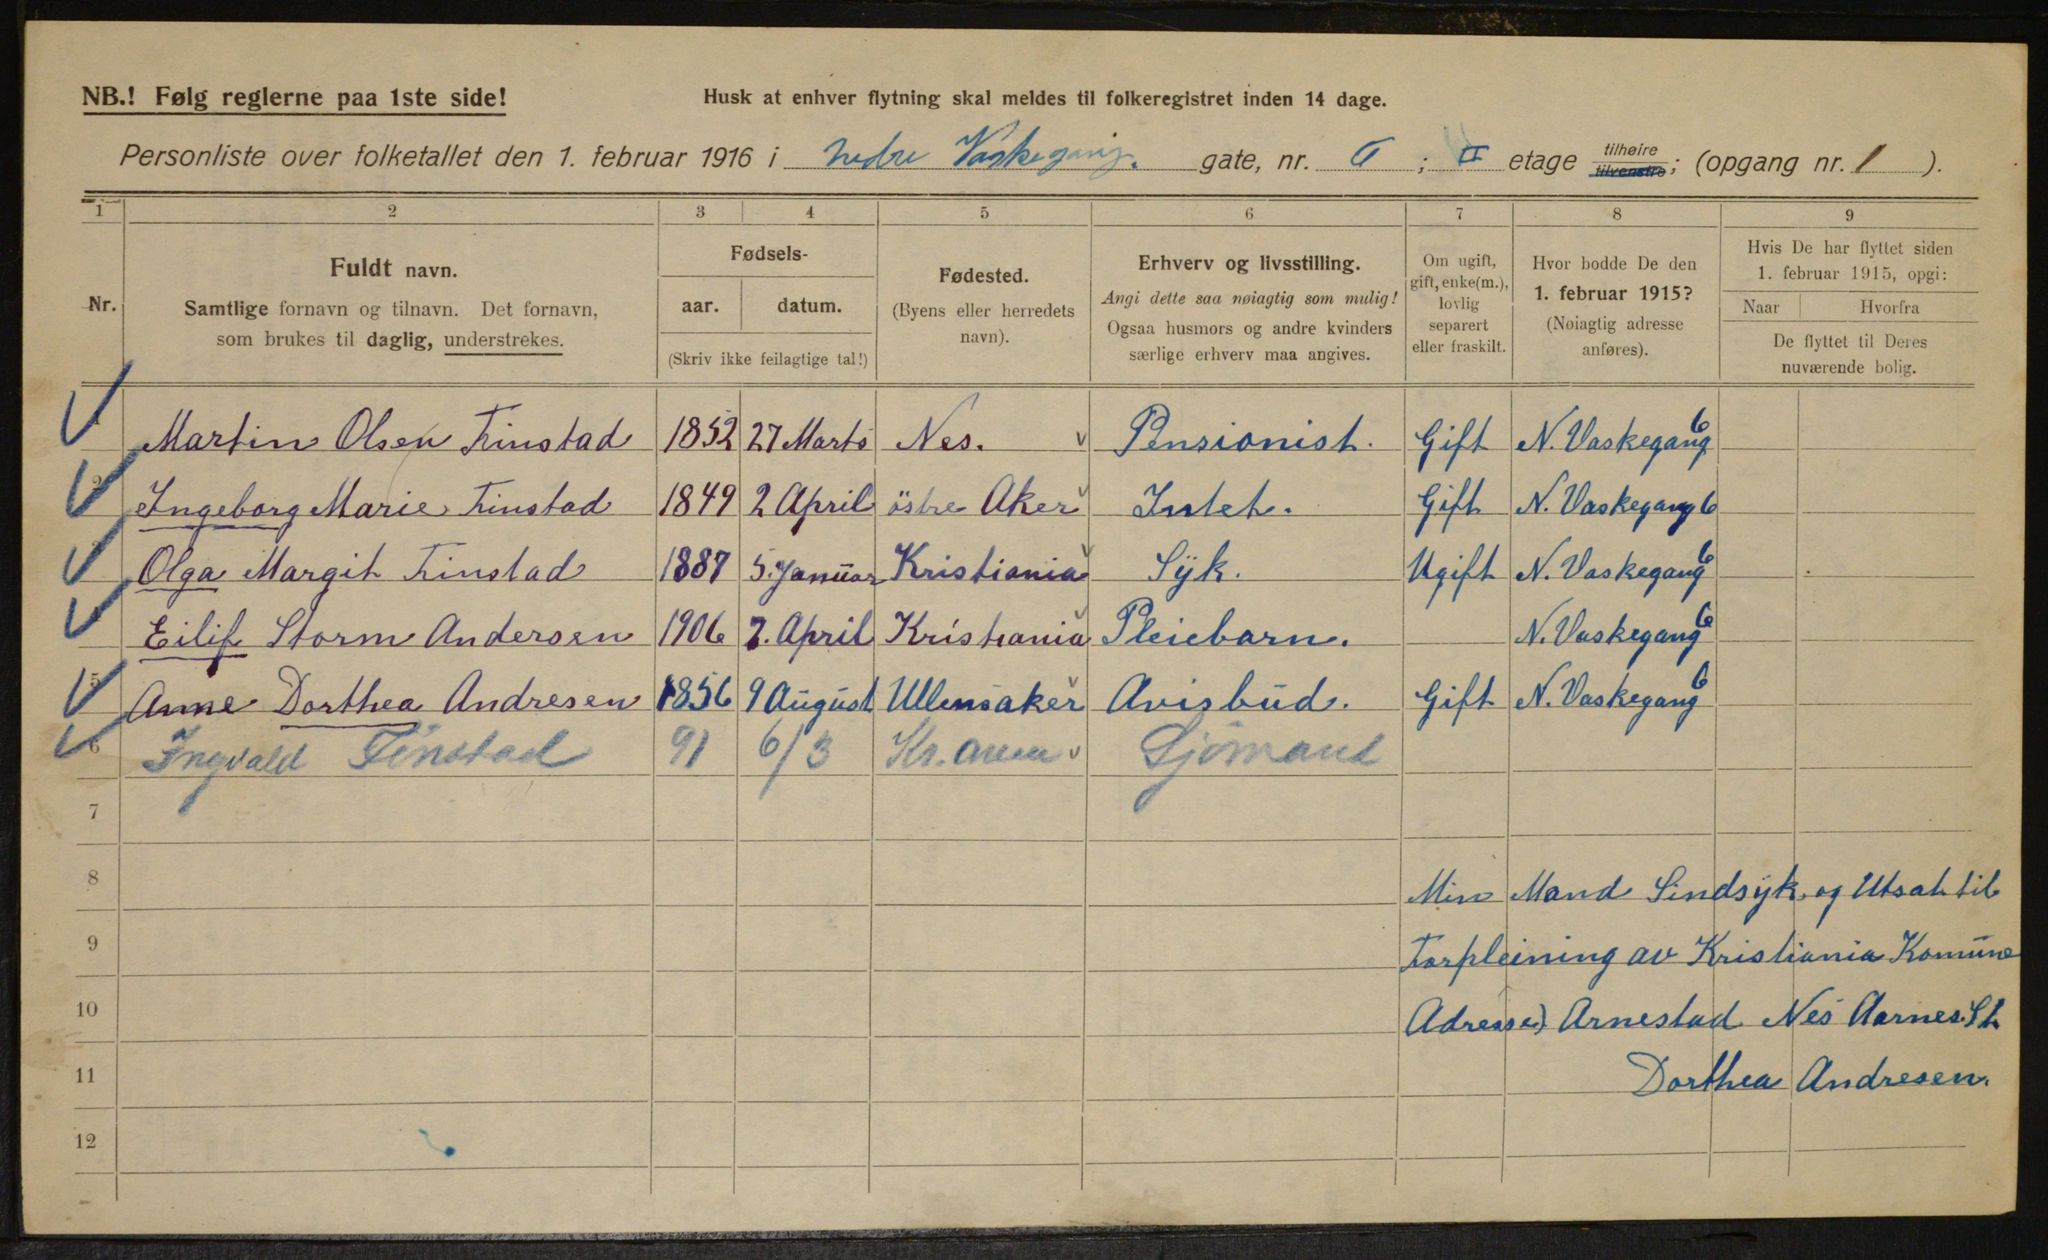 NB.! Følg reglerne paa 1ste side!
Husk at enhver flytning skal meldes til folkeregistret inden 14 dage.
Personliste over folketallet den 1. februar 1916 i Nedre Vaskegang. gate, nr. 6 ; II etage tilhøire tilvenstre; (opgang nr. 1 ).
1 2 3 4 5 6 7 8 9
Nr.
Fuldt navn.
Samtlige fornavn og tilnavn. Det fornavn,
som brukes til daglig, understrekes.
Fødsels-
aar. datum.
(Skriv ikke feilagtige tal!)
Fødested.
(Byens eller herredets
navn).
Erhverv og livsstilling.
Angi dette saa nøiagtig som mulig!
Ogsaa husmors og andre kvinders
særlige erhverv maa angives.
Om ugift,
gift, enke(m.),
lovlig
separert
eller fraskilt.
Hvor bodde De den
1. februar 1915?
(Nøiagtig adresse
anføres).
Hvis De har flyttet siden
1. februar 1915, opgi:
Naar Hvorfra
De flyttet til Deres
nuværende bolig.
Martin Olsen Finstad 1852 27 Marts Nes. Pensionist. Gift N. Vaskegang 6
2 Ingeborg Marie Finstad 1849 2 April östre Aker Intet. Gift N. Vaskegang 6
Olga Margit Finstad 1887 5. Januar Kristiania Syk. Ugift N. Vaskegang 6
Eilif Storm Andersen 1906 7. April Kristiania Pleiebarn. N. Vaskegang 6
5 Anne Dorthea Andresen 1856 9 August Ullensaker Avisbud. Gift N. Vaskegang 6
6 Ingvald Finstad 91 6/3 Kr.ania Sjömand
7
8 Min Mand Sindsyk og Utsat til
9 Forpleining av Kristiania Komune
10 Adresse) Arnestad Nes Aarnes. St
11 Dorthea Andresen.
12